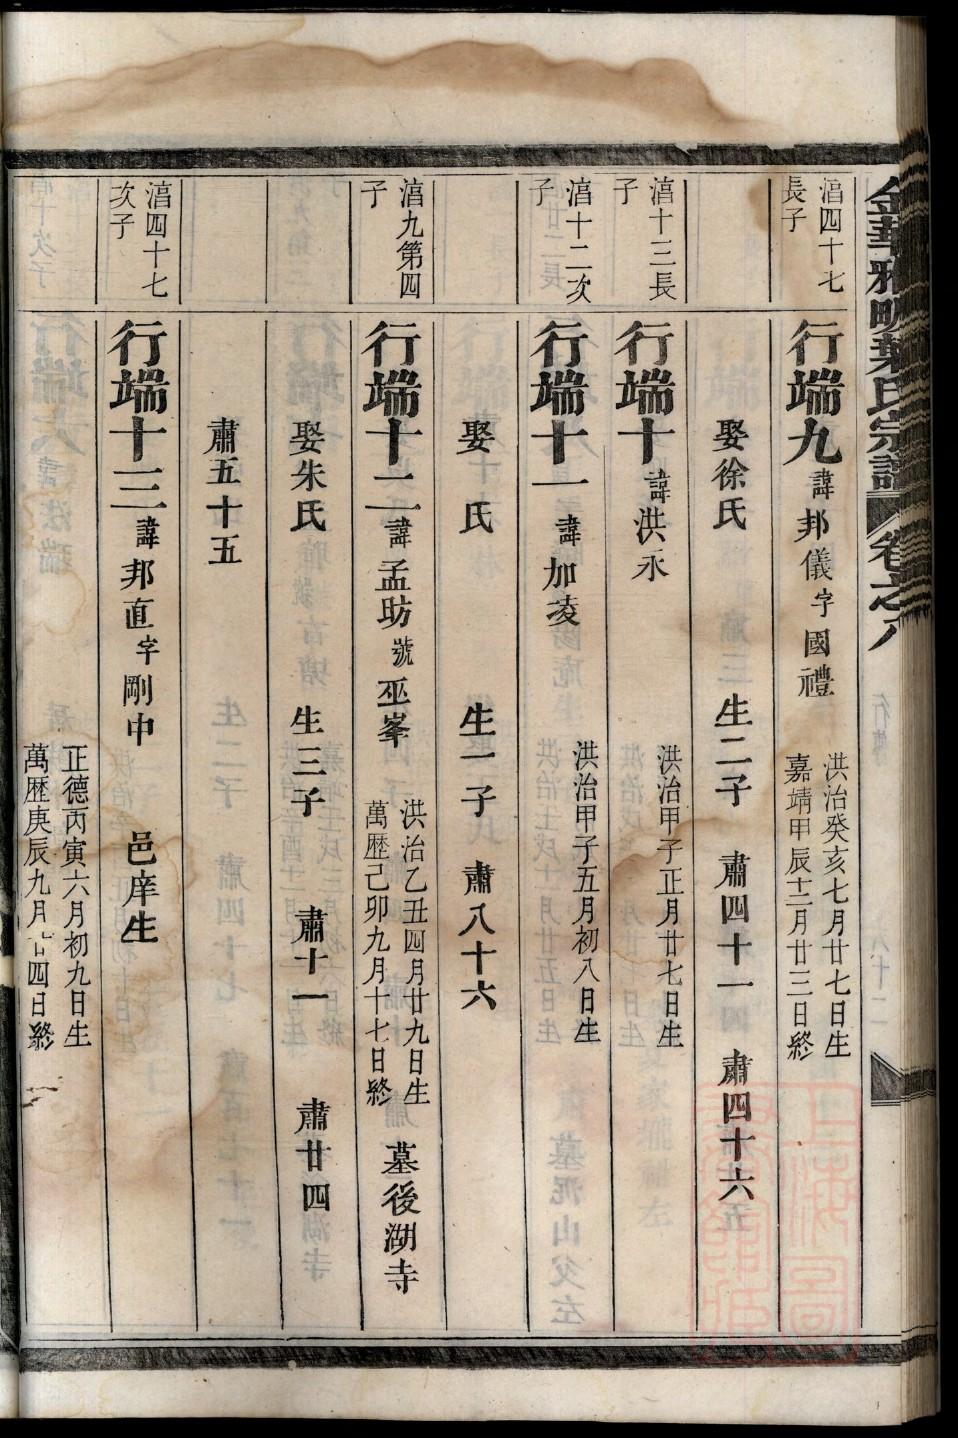 金華雅畈葉氏宗譜 卷之八
湻四十七長子
行端九 諱邦儀字國禮 洪治癸亥七月廿七日生
嘉靖甲辰十二月廿三日終
娶徐氏 生二子 肅四十一 肅四十六
湻十三長子
行端十 諱洪永 洪治甲子正月廿七日生
湻十二次子
行端十一 諱加凌 洪治甲子五月初八日生
娶 氏 生一子 肅八十六
湻九第四子
行端十二 諱孟昉號巫峯 洪治乙丑四月廿九日生
萬歷己卯九月十七日終 墓後湖寺
娶朱氏 生三子 肅十一 肅廿四
肅五十五
湻四十七次子
行端十三 諱邦直字剛中 邑庠生
正德丙寅六月初九日生
萬歷庚辰九月廿四日終